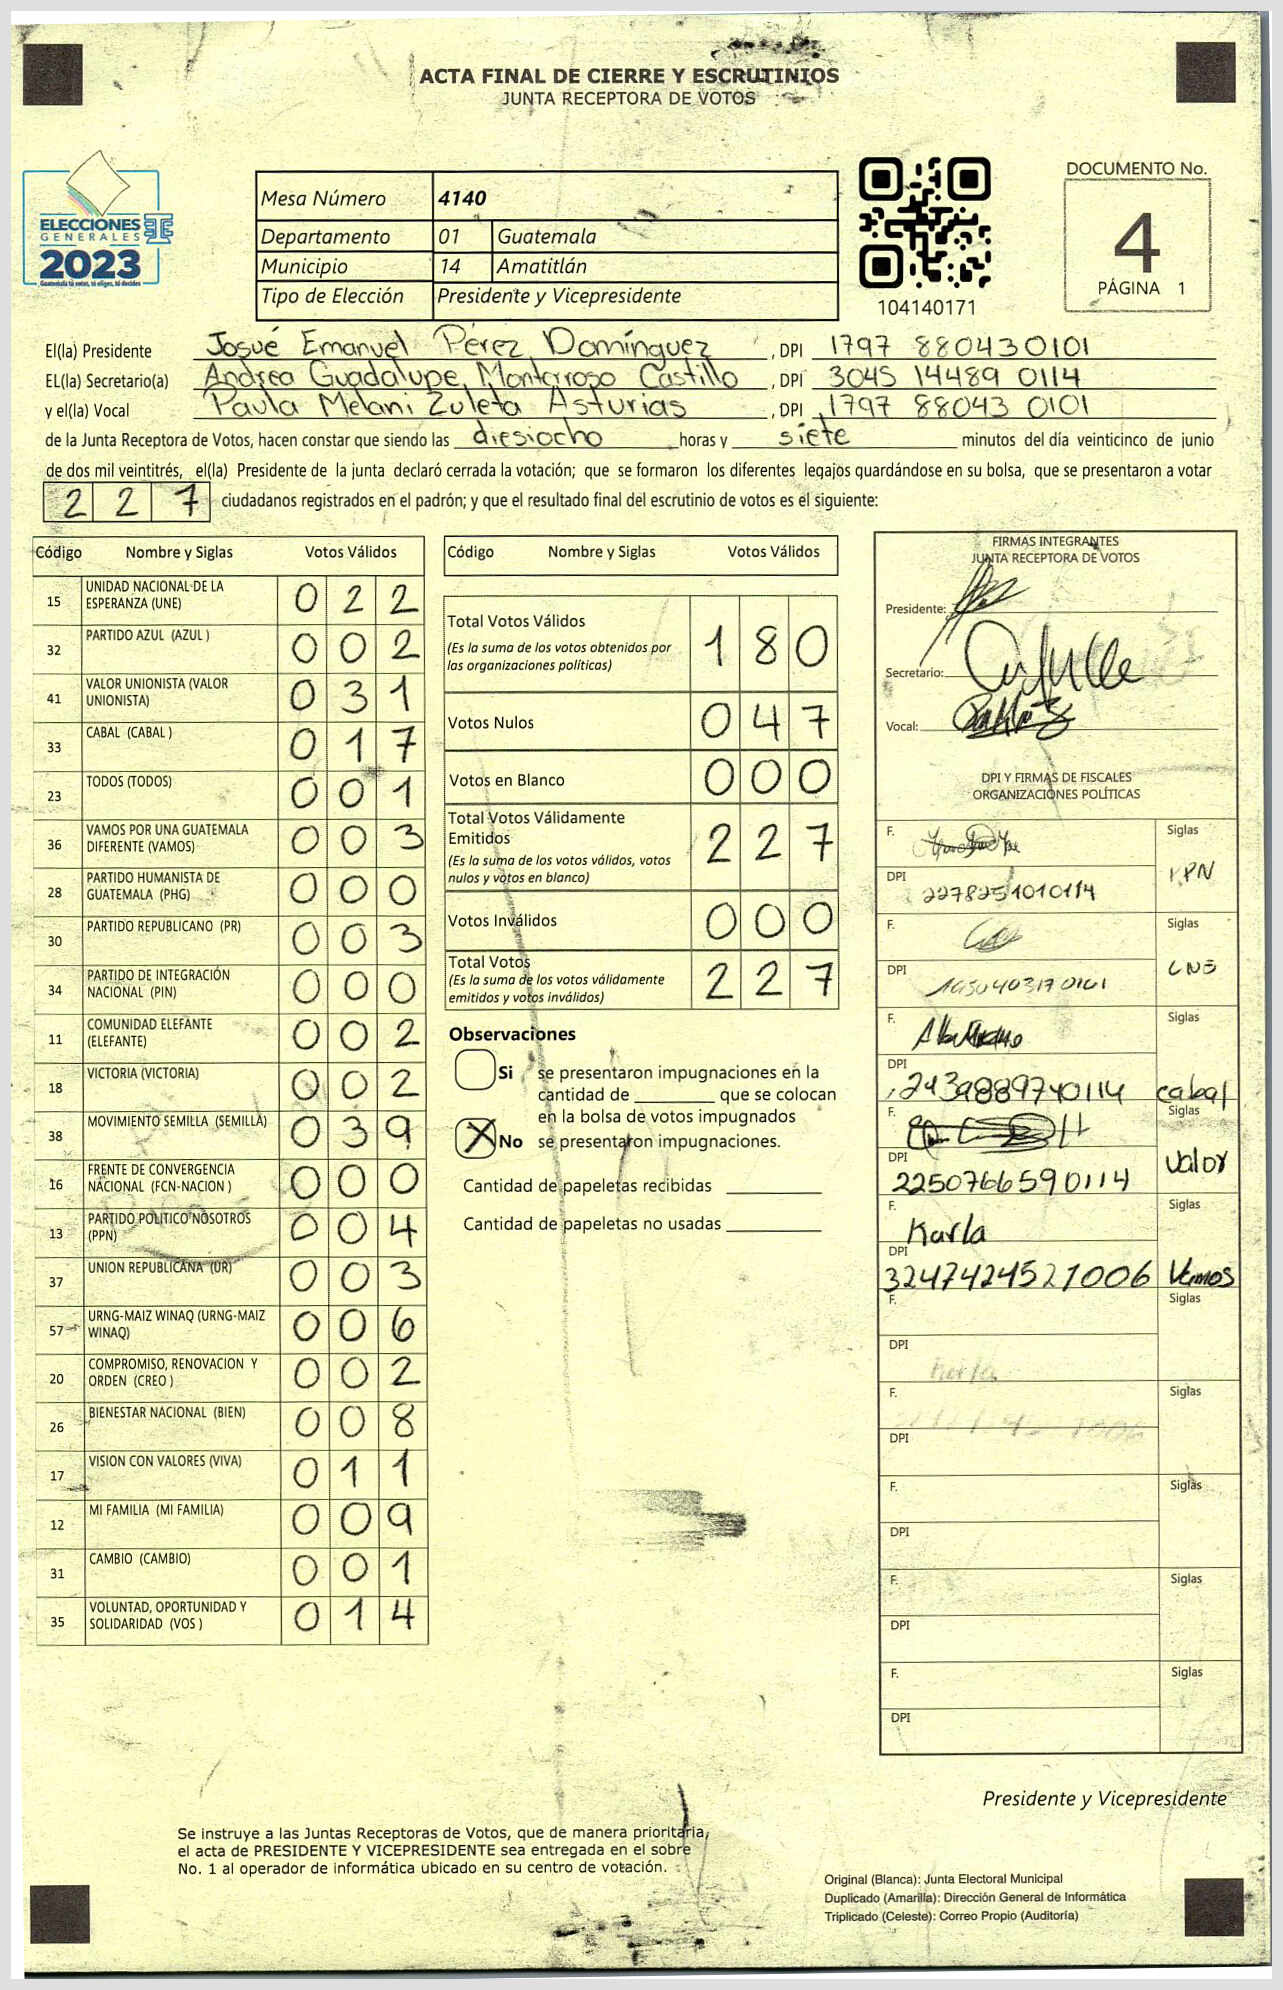 ACTA FINAL DE CIERRE Y ESCRUTINIOS
JUNTA RECEPTORA DE VOTOS
ELECCIONES
GENERALES
2023
Guatemala tú votas, tú eliges, tú decides
Mesa Número 4140
Departamento 01 Guatemala
Municipio 14 Amatitlán
Tipo de Elección Presidente y Vicepresidente
104140171
DOCUMENTO No.
4
PÁGINA 1
El(la) Presidente Josué Emanuel Pérez Domínguez , DPI 1797 880430101
EL(la) Secretario(a) Andrea Guadalupe Montarroso Castillo , DPI 3045 14489 0114
y el(la) Vocal Paula Melani Zuleta Asturias , DPI 1797 88043 0101
de la Junta Receptora de Votos, hacen constar que siendo las diesiocho horas y siete minutos del día veinticinco de junio
de dos mil veintitrés, el(la) Presidente de la junta declaró cerrada la votación; que se formaron los diferentes legajos guardándose en su bolsa, que se presentaron a votar
227 ciudadanos registrados en el padrón; y que el resultado final del escrutinio de votos es el siguiente:
Código Nombre y Siglas Votos Válidos
15 UNIDAD NACIONAL DE LA ESPERANZA (UNE) 022
32 PARTIDO AZUL (AZUL ) 002
41 VALOR UNIONISTA (VALOR UNIONISTA) 031
33 CABAL (CABAL ) 017
23 TODOS (TODOS) 001
36 VAMOS POR UNA GUATEMALA DIFERENTE (VAMOS) 003
28 PARTIDO HUMANISTA DE GUATEMALA (PHG) 000
30 PARTIDO REPUBLICANO (PR) 003
34 PARTIDO DE INTEGRACIÓN NACIONAL (PIN) 000
11 COMUNIDAD ELEFANTE (ELEFANTE) 002
18 VICTORIA (VICTORIA) 002
38 MOVIMIENTO SEMILLA (SEMILLA) 039
16 FRENTE DE CONVERGENCIA NACIONAL (FCN-NACION ) 000
13 PARTIDO POLITICO NOSOTROS (PPN) 004
37 UNION REPUBLICANA (UR) 003
57 URNG-MAIZ WINAQ (URNG-MAIZ WINAQ) 006
20 COMPROMISO, RENOVACION Y ORDEN (CREO ) 002
26 BIENESTAR NACIONAL (BIEN) 008
17 VISION CON VALORES (VIVA) 011
12 MI FAMILIA (MI FAMILIA) 009
31 CAMBIO (CAMBIO) 001
35 VOLUNTAD, OPORTUNIDAD Y SOLIDARIDAD (VOS ) 014
Código Nombre y Siglas Votos Válidos
Total Votos Válidos 180
(Es la suma de los votos obtenidos por
las organizaciones políticas)
Votos Nulos 047
Votos en Blanco 000
Total Votos Válidamente
Emitidos 227
(Es la suma de los votos válidos, votos
nulos y votos en blanco)
Votos Inválidos 000
Total Votos 227
(Es la suma de los votos válidamente
emitidos y votos inválidos)
Observaciones
Si se presentaron impugnaciones en la
cantidad de ________ que se colocan
en la bolsa de votos impugnados
X No se presentaron impugnaciones.
Cantidad de papeletas recibidas
Cantidad de papeletas no usadas
FIRMAS INTEGRANTES
JUNTA RECEPTORA DE VOTOS
Presidente:
Secretario:
Vocal:
DPI Y FIRMAS DE FISCALES
ORGANIZACIONES POLÍTICAS
F. Siglas
DPI 2278251010114
F. Siglas
DPI
F. Siglas
DPI 2439889740114 cabal
F. Siglas
DPI 2250766590114 valor
F. Karla Siglas
DPI 3247424521006 Vamos
F. Siglas
DPI
F. Siglas
DPI
F. Siglas
DPI
F. Siglas
DPI
F. Siglas
DPI
Presidente y Vicepresidente
Se instruye a las Juntas Receptoras de Votos, que de manera prioritaria,
el acta de PRESIDENTE Y VICEPRESIDENTE sea entregada en el sobre
No. 1 al operador de informática ubicado en su centro de votación.
Original (Blanca): Junta Electoral Municipal
Duplicado (Amarilla): Dirección General de Informática
Triplicado (Celeste): Correo Propio (Auditoría)